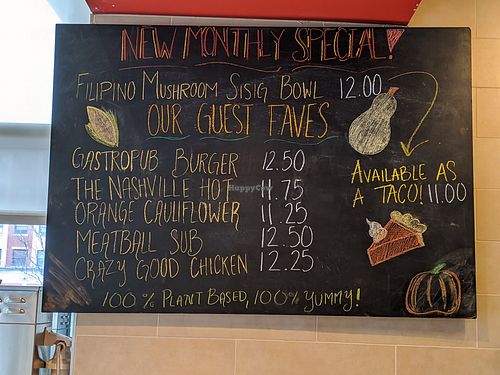 NEW MONTHLY SPECIAL!
FILIPINO MUSHROOM SISIG BOWL 12.00
OUR GUEST FAVES
AVAILABLE AS
A TACO! 11.00
GASTROPUB BURGER 12.50
THE NASHVILLE HOT 11.75
ORANGE CAULIFLOWER 11.25
MEATBALL SUB 12.50
CRAZY GOOD CHICKEN 12.25
100% PLANT BASED, 100% YUMMY!
HappyCow